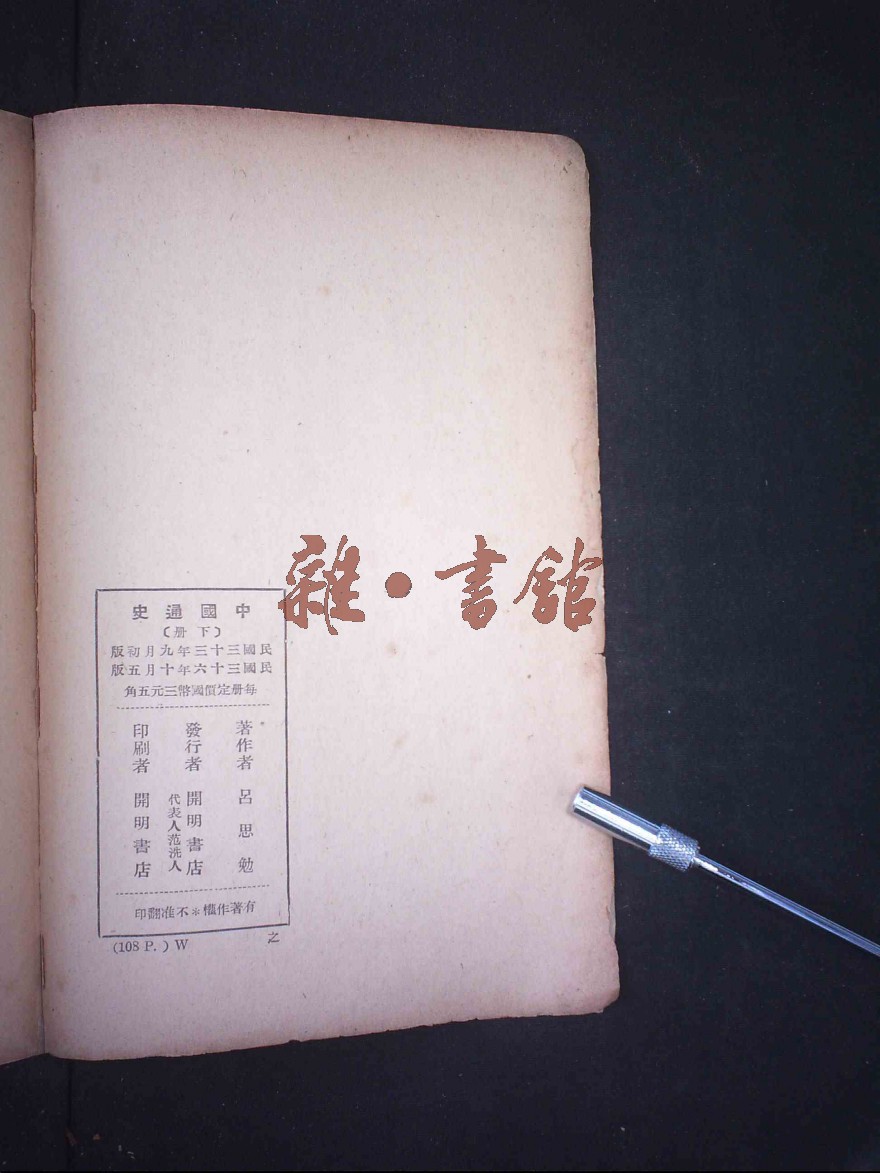 雜·書館
中國通史
(下册)
民國三十三年九月初版
民國三十六年十月五版
每册定價國幣三元五角
著作者 呂思勉
發行者 開明書店
代表人范洗人
印刷者 開明書店
有著作權＊不准翻印
(108 P.) W
之